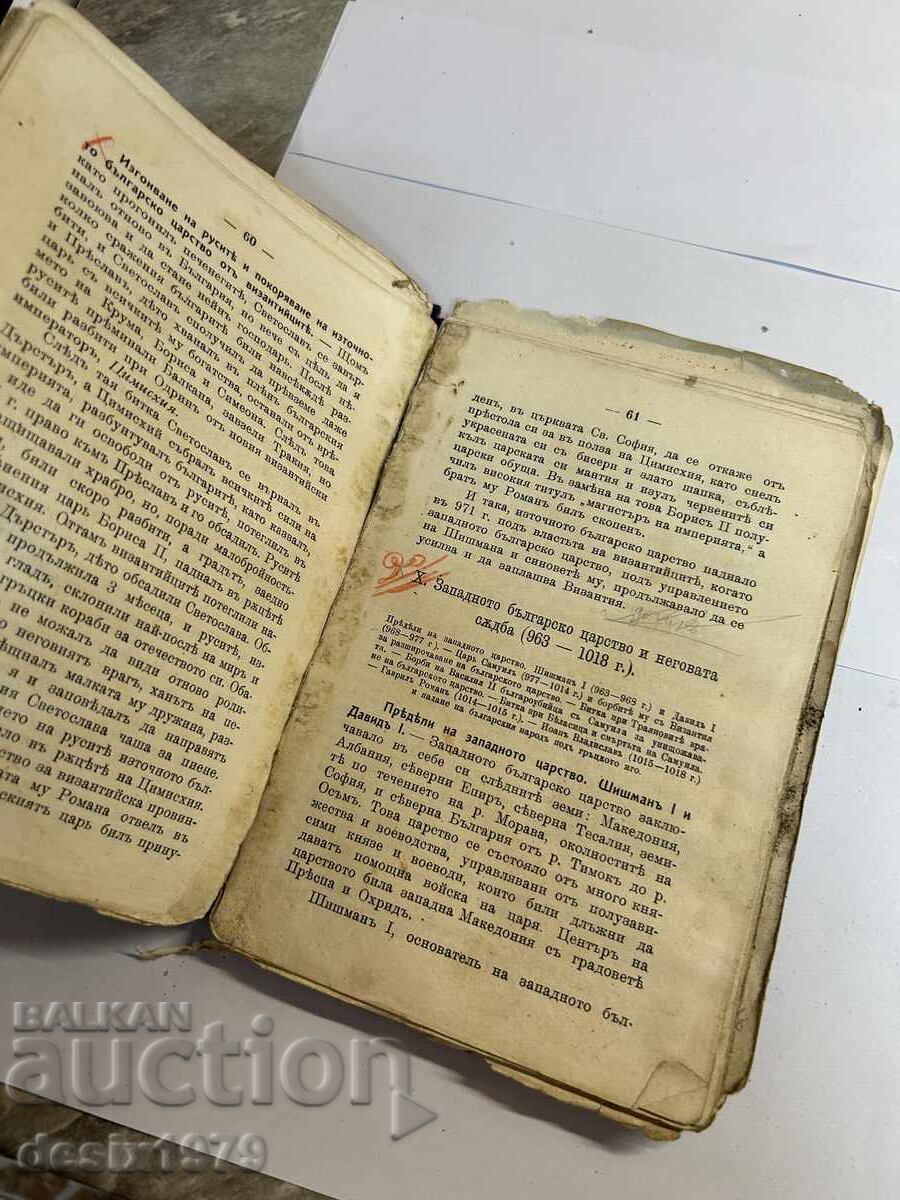 — 60 —
Изгонване на руситѣ и покоряване на източно-
то българско царство отъ византийцитѣ. — Щомъ
като прогонилъ печенегитѣ, Светославъ се завър-
налъ отново въ България, но вече съ цѣль да я
завоюва и да стане нейнъ господарь. Послѣ нѣ-
колко сражения българитѣ били навсѣкждѣ раз-
бити, и Светославъ сполучилъ да прѣвземе даже
и Прѣславъ, дѣто хваналъ въ плѣнъ българския
царь съ всичкитѣ му богатства, останали отъ врѣ-
мето на Крума, Бориса и Симеона. Слѣдъ това
руситѣ прѣминали Балкана, завзели Тракия, но
били разбити при Одринъ отъ новия византийски
императоръ, Цимисхия.
Слѣдъ тая битка Светославъ се върналъ въ
Дърстъръ, а Цимисхий събралъ всичкитѣ сили на
империята, разбунтувалъ българитѣ, като казвалъ,
иде да ги освободи отъ руситѣ, потеглилъ въ
г. право къмъ Прѣславъ и го обсадилъ. Руситѣ
защищавали храбро, но, поради малобройность-
били скоро разбити, а градътъ, заедно
ленения царь Бориса II, падналъ въ ржцѣтѣ
мисхия. Оттамъ византийцитѣ потегли на-
Дърстъръ, дѣто обсадили Светослава. Об-
продължила 3 мѣсеца, и руситѣ, из-
гладъ, склонили най-послѣ на миръ и
гръцки кораби за отечеството си. Оба-
не можалъ да види отново роди-
неговиятъ врагъ, ханътъ на пе-
рѣщналъ малката му дружина, раз-
я и заповѣдалъ да направятъ
Светослава чаша за пиене.
нето на руситѣ източното бъл-
ало въ ржцѣтѣ на Цимисхия.
ството за византийска провин-
ата му Романа отвелъ въ
рскиятъ царь билъ прину-
— 61 —
денъ, въ църквата Св. София, да се откаже отъ
прѣстола си за въ полза на Цимисхия, като снелъ
украсената си съ бисери и злато шапка, съблѣ-
кълъ царската си мантия и изулъ червенитѣ си
царски обуща. Въ замѣна на това Борисъ II полу-
чилъ високия титулъ „магистъръ на империята,“ а
братъ му Романъ билъ скопенъ.
И така, източното българско царство паднало
въ 971 г. подъ властьта на византийцитѣ, когато
западното българско царство, подъ управлението
на Шишмана и синоветѣ му, продължавало да се
усилва и да заплашва Византия.
X. Западното българско царство и неговата
сждба (963 — 1018 г.).
Прѣдѣли на западното царство. Шишманъ I (963—968 г.) и Давидъ I
(968—977 г.). — Царь Самуилъ (977—1014 г.) и борбитѣ му съ Византия
за разширочаване на българското царство. — Битка при Траяновитѣ вра-
та. — Борби на Василия II българоубийца съ Самуила за унищожава-
не на българското царство. — Битка при Бѣласица и смъртьта на Самуила.
Гаврилъ Романъ (1014—1015 г.). — Иоанъ Владиславъ (1015—1018 г.)
и падане на българския народъ подъ гръцкото иго.
Прѣдѣли на западното царство. Шишманъ I и
Давидъ I. — Западното българско царство заклю-
чавало въ себе си слѣднитѣ земи: Македония,
Албания, сѣверни Епиръ, сѣверна Тесалия, земи-
тѣ по течението на р. Морава, околноститѣ на
София, и сѣверна България отъ р. Тимокъ до р.
Осъмъ. Това царство се състояло отъ много кня-
жества и воеводства, управлявани отъ полузави-
сими князе и воеводи, които били длъжни да
давать помощна войска на царя. Центъръ на
царството била западна Македония съ градоветѣ
Прѣспа и Охридъ.
Шишманъ I, основатель на западното бъл-
BALKAN
auction
desix1979